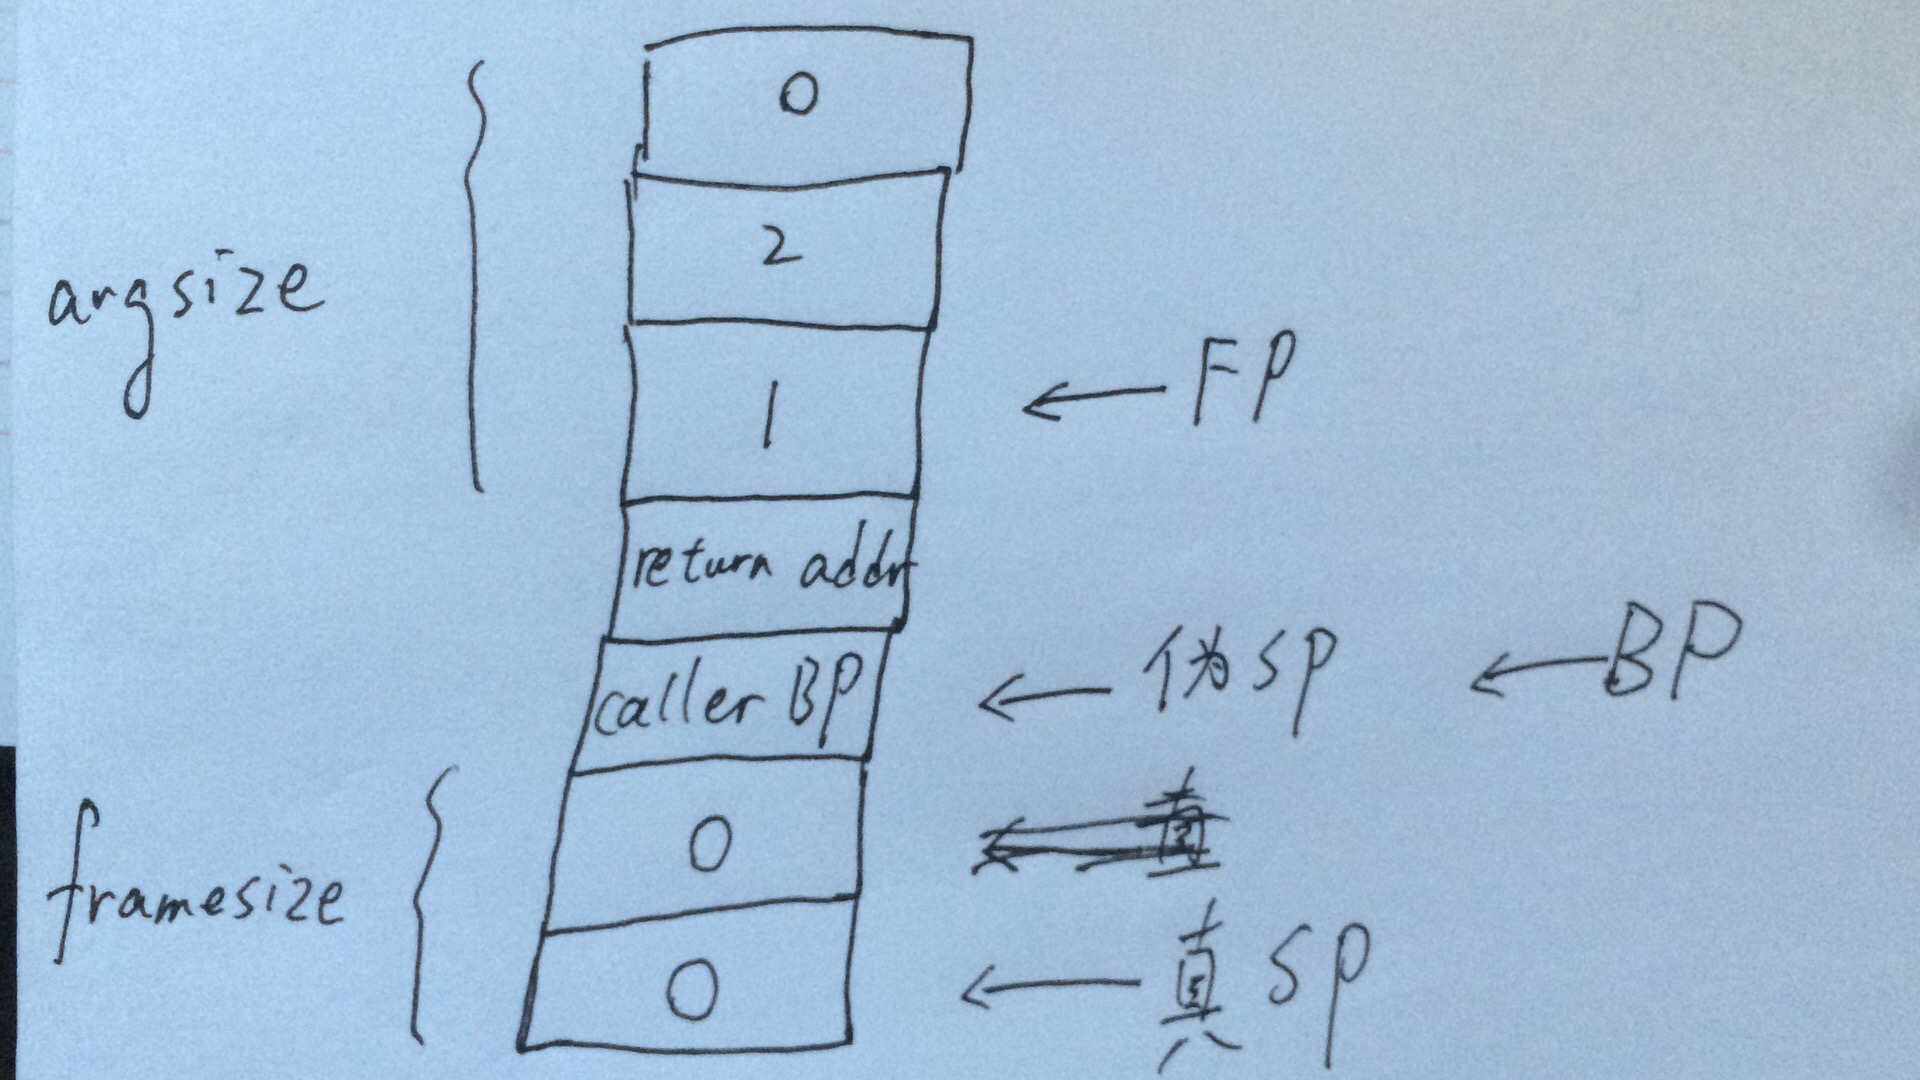 0
2
argsize
1
FP
return addr
caller BP
伪SP
BP
0
framesize
0
真SP